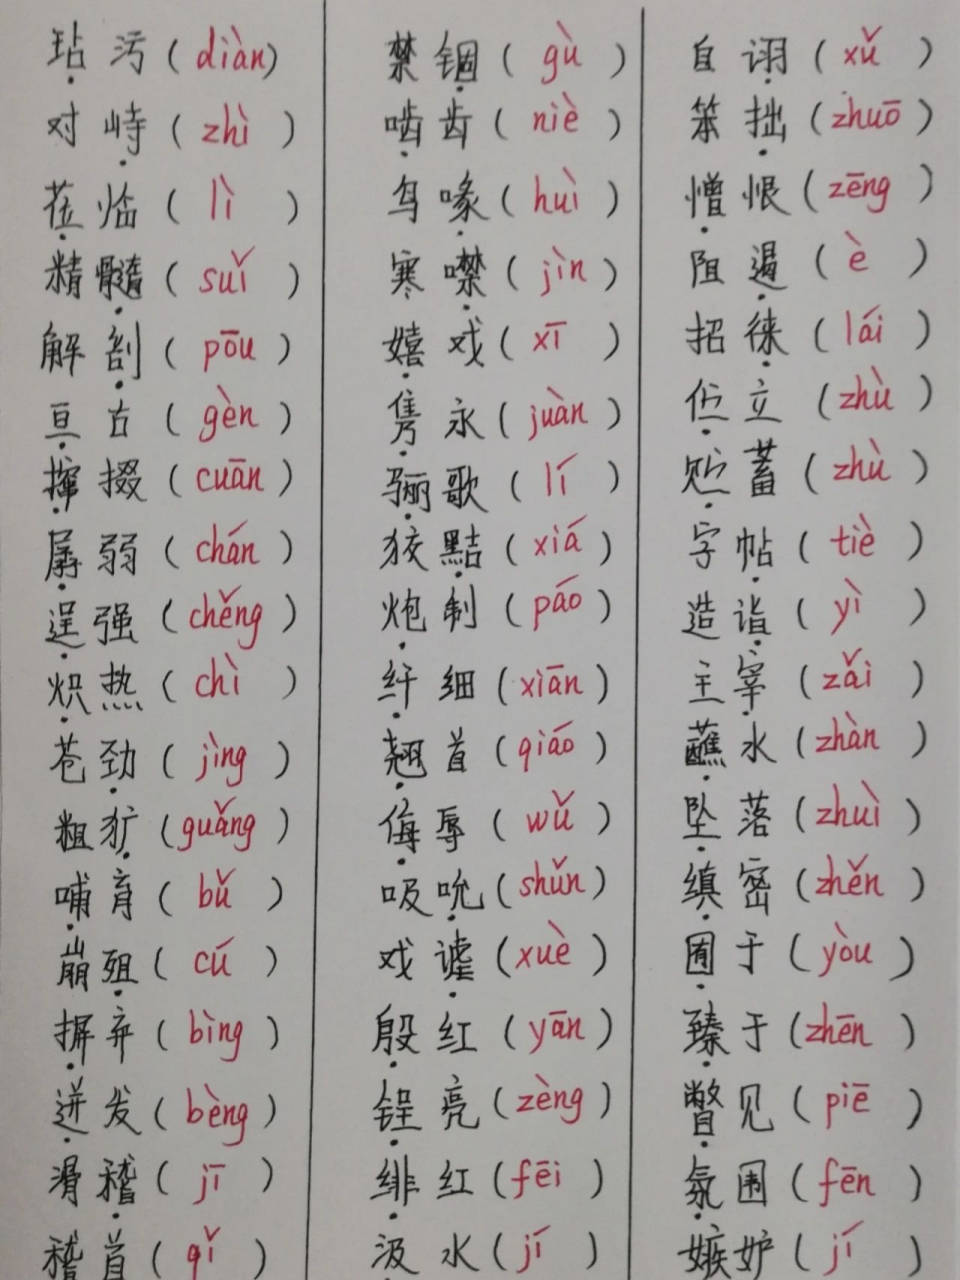 玷污(diàn)
对峙(zhì)
莅临(lì)
精髓(suǐ)
解剖(pōu)
亘古(gèn)
撺掇(cuān)
孱弱(chán)
逞强(chěng)
炽热(chì)
苍劲(jìng)
粗犷(guǎng)
哺育(bǔ)
崩殂(cú)
摒弃(bìng)
迸发(bèng)
滑稽(jī)
稽首(qǐ)
禁锢(gù)
啮齿(niè)
鸟喙(huì)
寒噤(jìn)
嬉戏(xī)
隽永(juàn)
骊歌(lí)
狡黠(xiá)
炮制(páo)
纤细(xiān)
翘首(qiáo)
侮辱(wǔ)
吸吮(shǔn)
戏谑(xuè)
殷红(yān)
锃亮(zèng)
绯红(fēi)
汲水(jí)
自诩(xǔ)
笨拙(zhuō)
憎恨(zēng)
阻遏(è)
招徕(lái)
伫立(zhù)
贮蓄(zhù)
字帖(tiè)
造诣(yì)
主宰(zǎi)
蘸水(zhàn)
坠落(zhuì)
缜密(zhěn)
囿于(yòu)
臻于(zhēn)
瞥见(piē)
氛围(fēn)
嫉妒(jí)